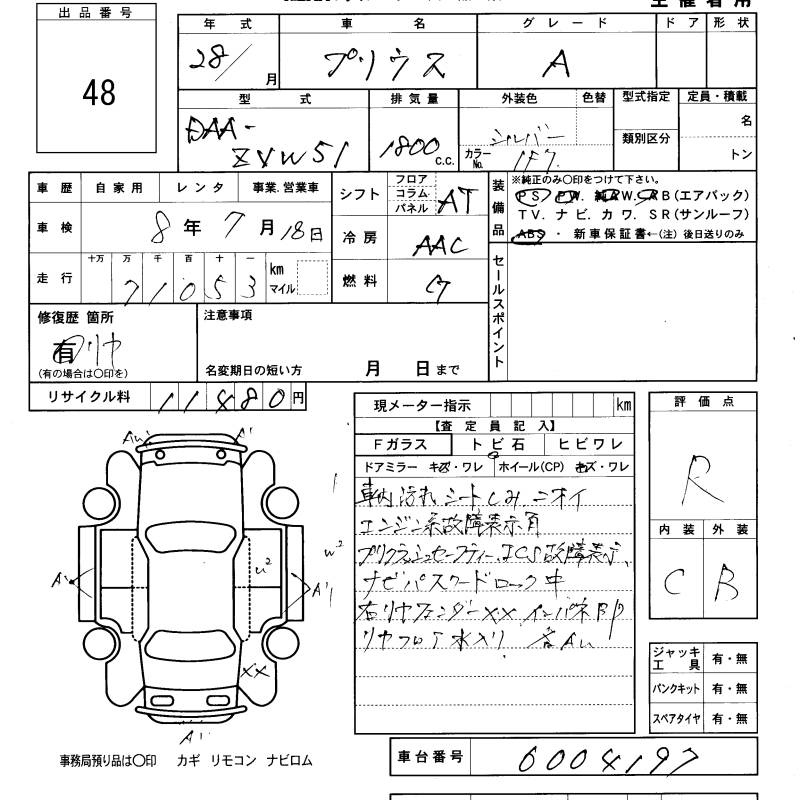 出品番号
48
年式 車名 グレード ドア 形状
28/ 月 プリウス A
型式 排気量 外装色 色替 型式指定 定員・積載
DAA-ZVW51 1800 c.c. シルバー カラーNo. 1F7 類別区分 名 トン
車歴 自家用 レンタ 事業.営業車
車検 8年7月18日
走行 十万 万 千 百 十 一 km マイル
71053
シフト フロア コラム パネル AT
冷房 AAC
燃料 G
装備品 ※純正のみ〇印をつけて下さい。
PS. PW. 純AW. SRB(エアバック)
TV. ナビ. カワ. SR(サンルーフ)
ABS ・ 新車保証書←(注) 後日送りのみ
セールスポイント
修復歴 箇所
有 リヤ
(有の場合は〇印を)
注意事項
名変期日の短い方 月 日まで
リサイクル料 11480円
現メーター指示 km
【査定員記入】
Fガラス トビ石 ヒビワレ
ドアミラー キズ・ワレ ホイール(CP) キズ・ワレ
車内汚れ シートしみ ニオイ
エンジン系故障表示有
プリクラッシュセーフティー、ICS故障表示、
ナビパスワードロック中
右リヤフェンダーXX インパネBP
リヤフロア水入り 各Au
評価点
R
内装 外装
C B
ジャッキ工具 有・無
パンクキット 有・無
スペアタイヤ 有・無
Au' A'
A' u² w² A'
XX
A'
事務局預り品は〇印 カギ リモコン ナビロム
車台番号 6004197